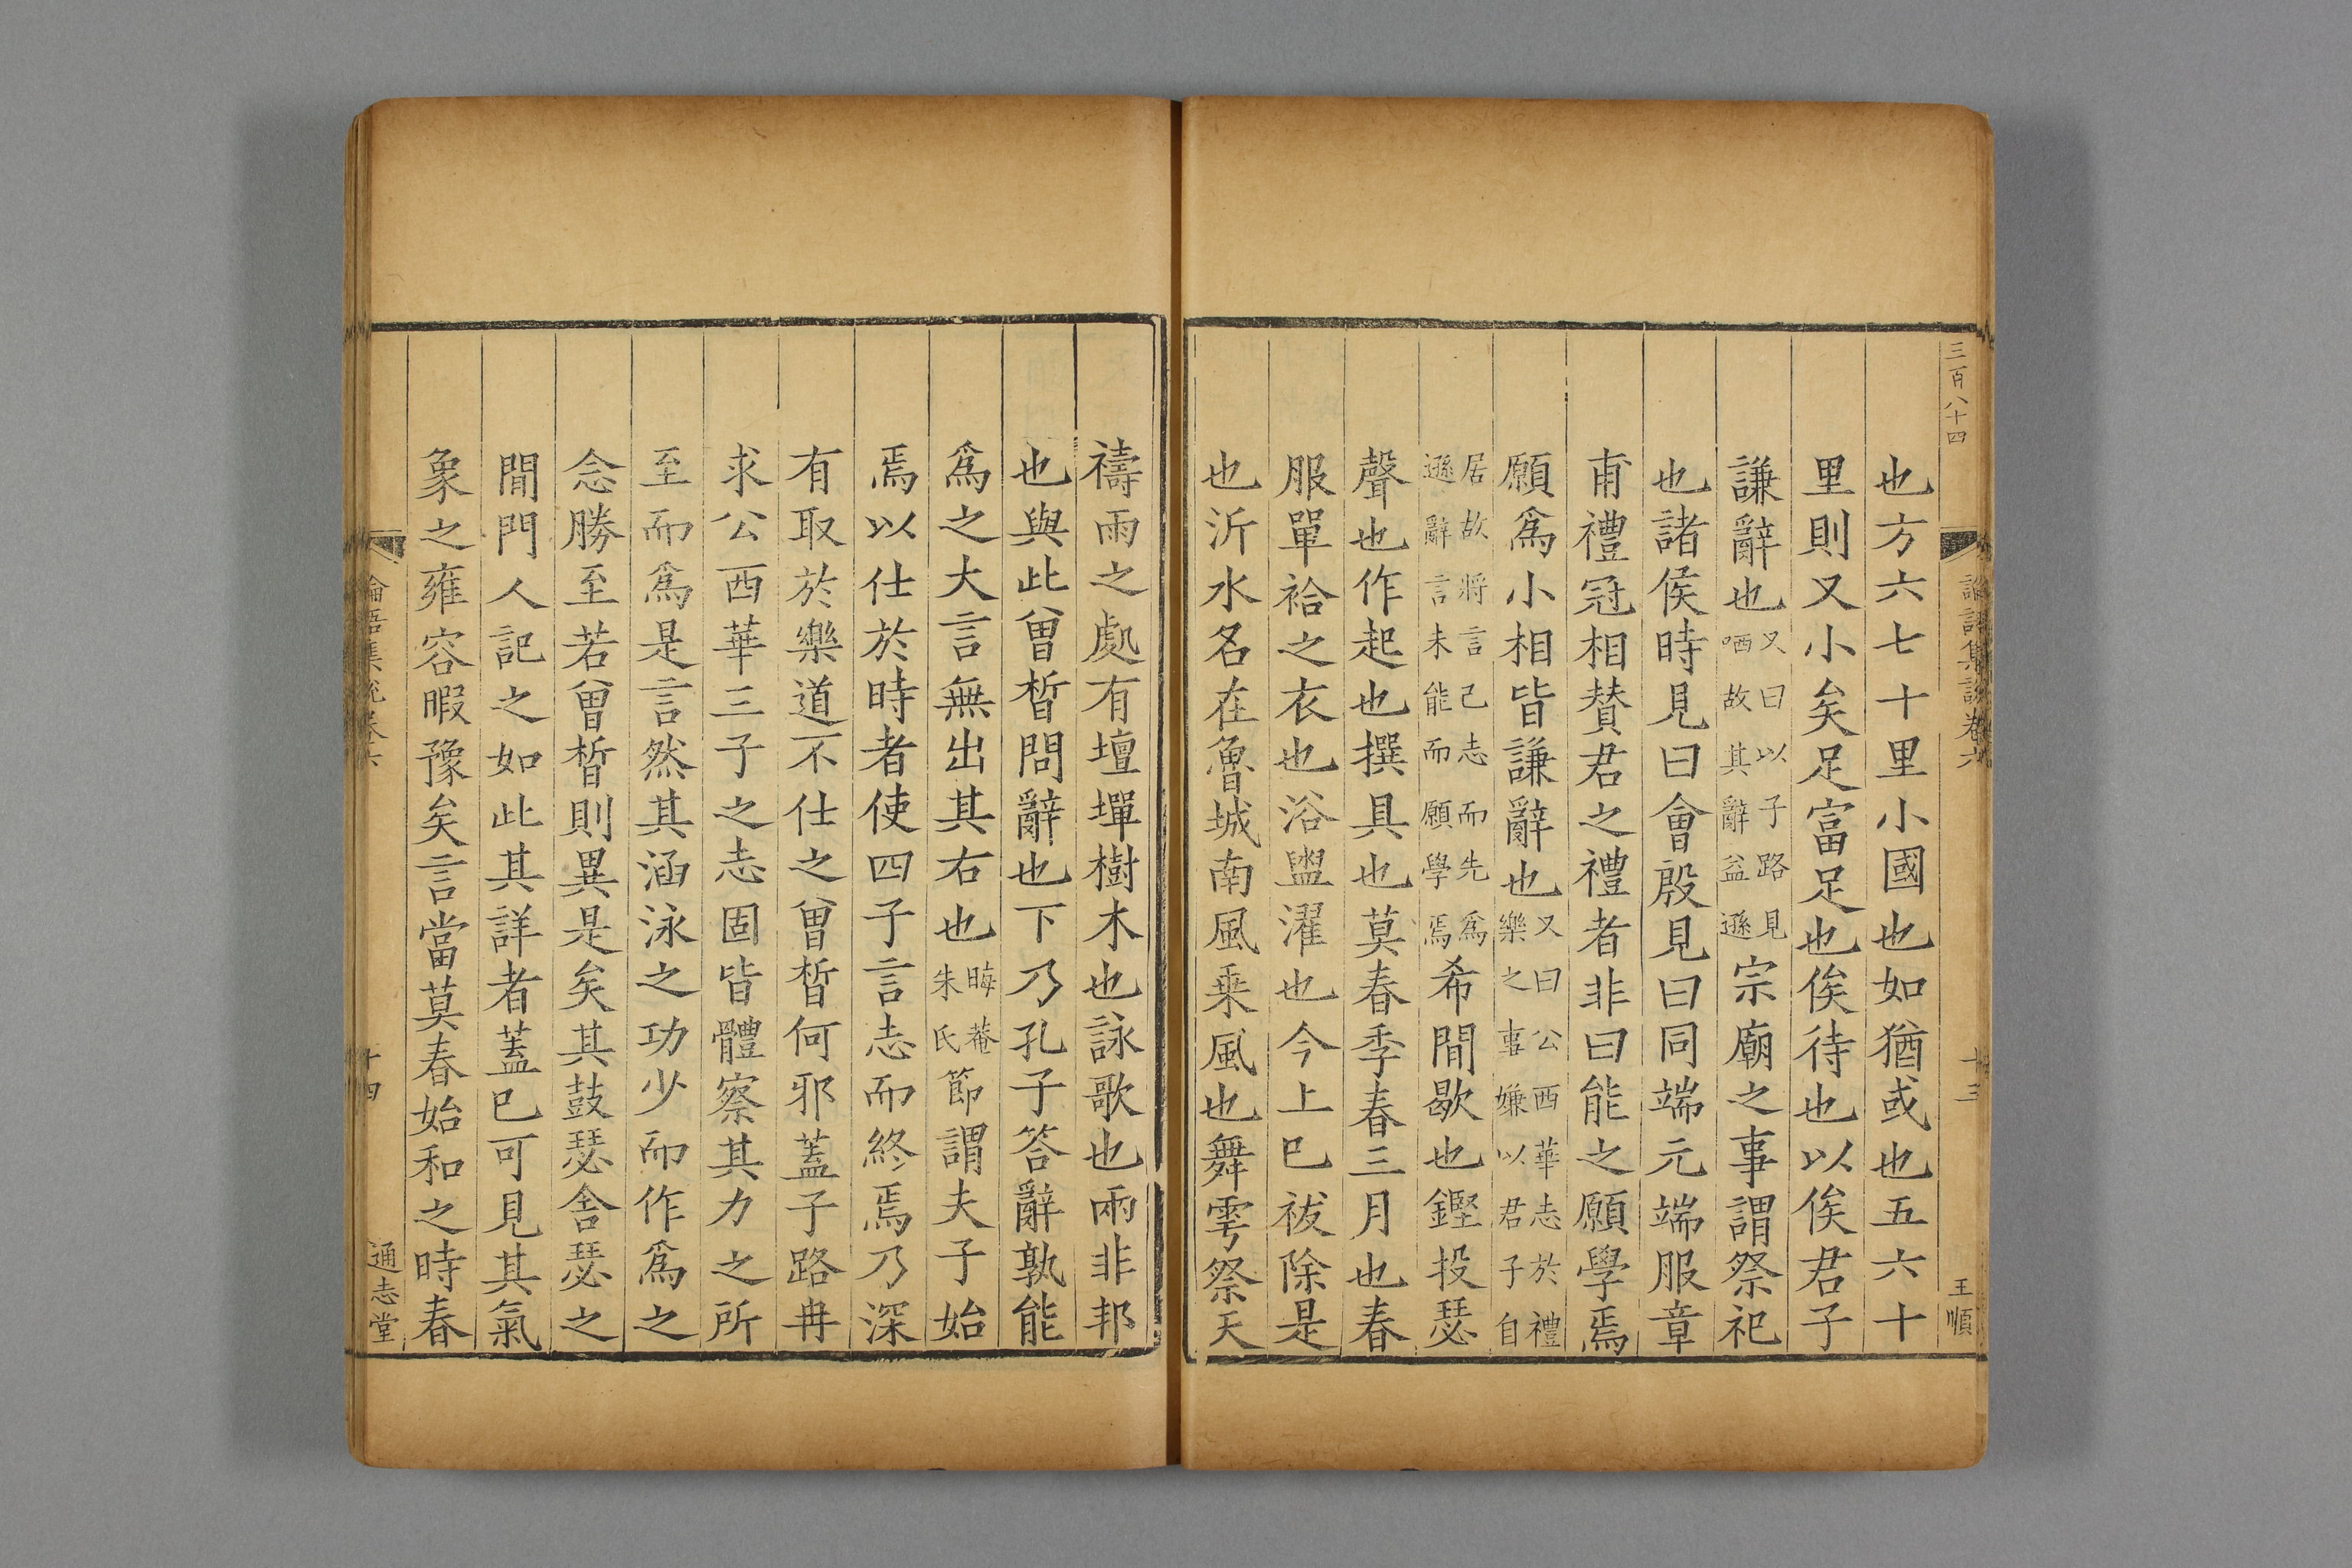 三百八十四
論語集說卷六
十三
王順
也方六七十里小國也如猶或也五六十
里則又小矣足富足也俟待也以俟君子
謙辭也又曰以子路見哂故其辭益遜宗廟之事謂祭祀
也諸侯時見曰會殷見曰同端元端服章
甫禮冠相賛君之禮者非曰能之願學焉
願爲小相皆謙辭也又曰公西華志於禮樂之事嫌以君子自
居故將言己志而先爲遜辭言未能而願學焉希間歇也鏗投瑟
聲也作起也撰具也莫春季春三月也春
服單袷之衣也浴盥濯也今上巳祓除是
也沂水名在魯城南風乗風也舞雩祭天
禱雨之處有壇墠樹木也詠歌也兩非邦
也與此曾晳問辭也下乃孔子答辭孰能
爲之大言無出其右也晦菴朱氏節謂夫子始
焉以仕於時者使四子言志而終焉乃深
有取於樂道不仕之曾晳何邪蓋子路冉
求公西華三子之志固皆體察其力之所
至而爲是言然其涵泳之功少而作爲之
念勝至若曾晳則異是矣其鼓瑟舍瑟之
間門人記之如此其詳者蓋已可見其氣
象之雍容暇豫矣言當莫春始和之時春
論語集說卷六
十四
通志堂